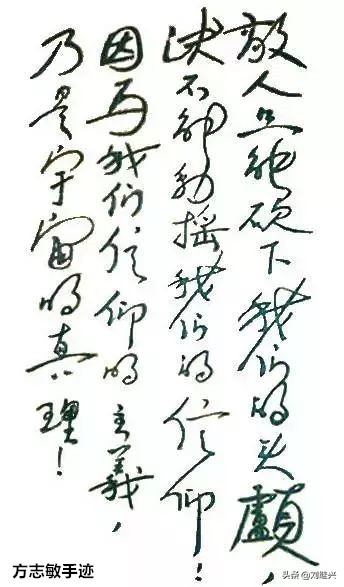 敌人只能砍下我们的头颅，
决不能动摇我们的信仰！
因为我们信仰的主义，
乃是宇宙的真理！
方志敏手迹
头条@刘继兴